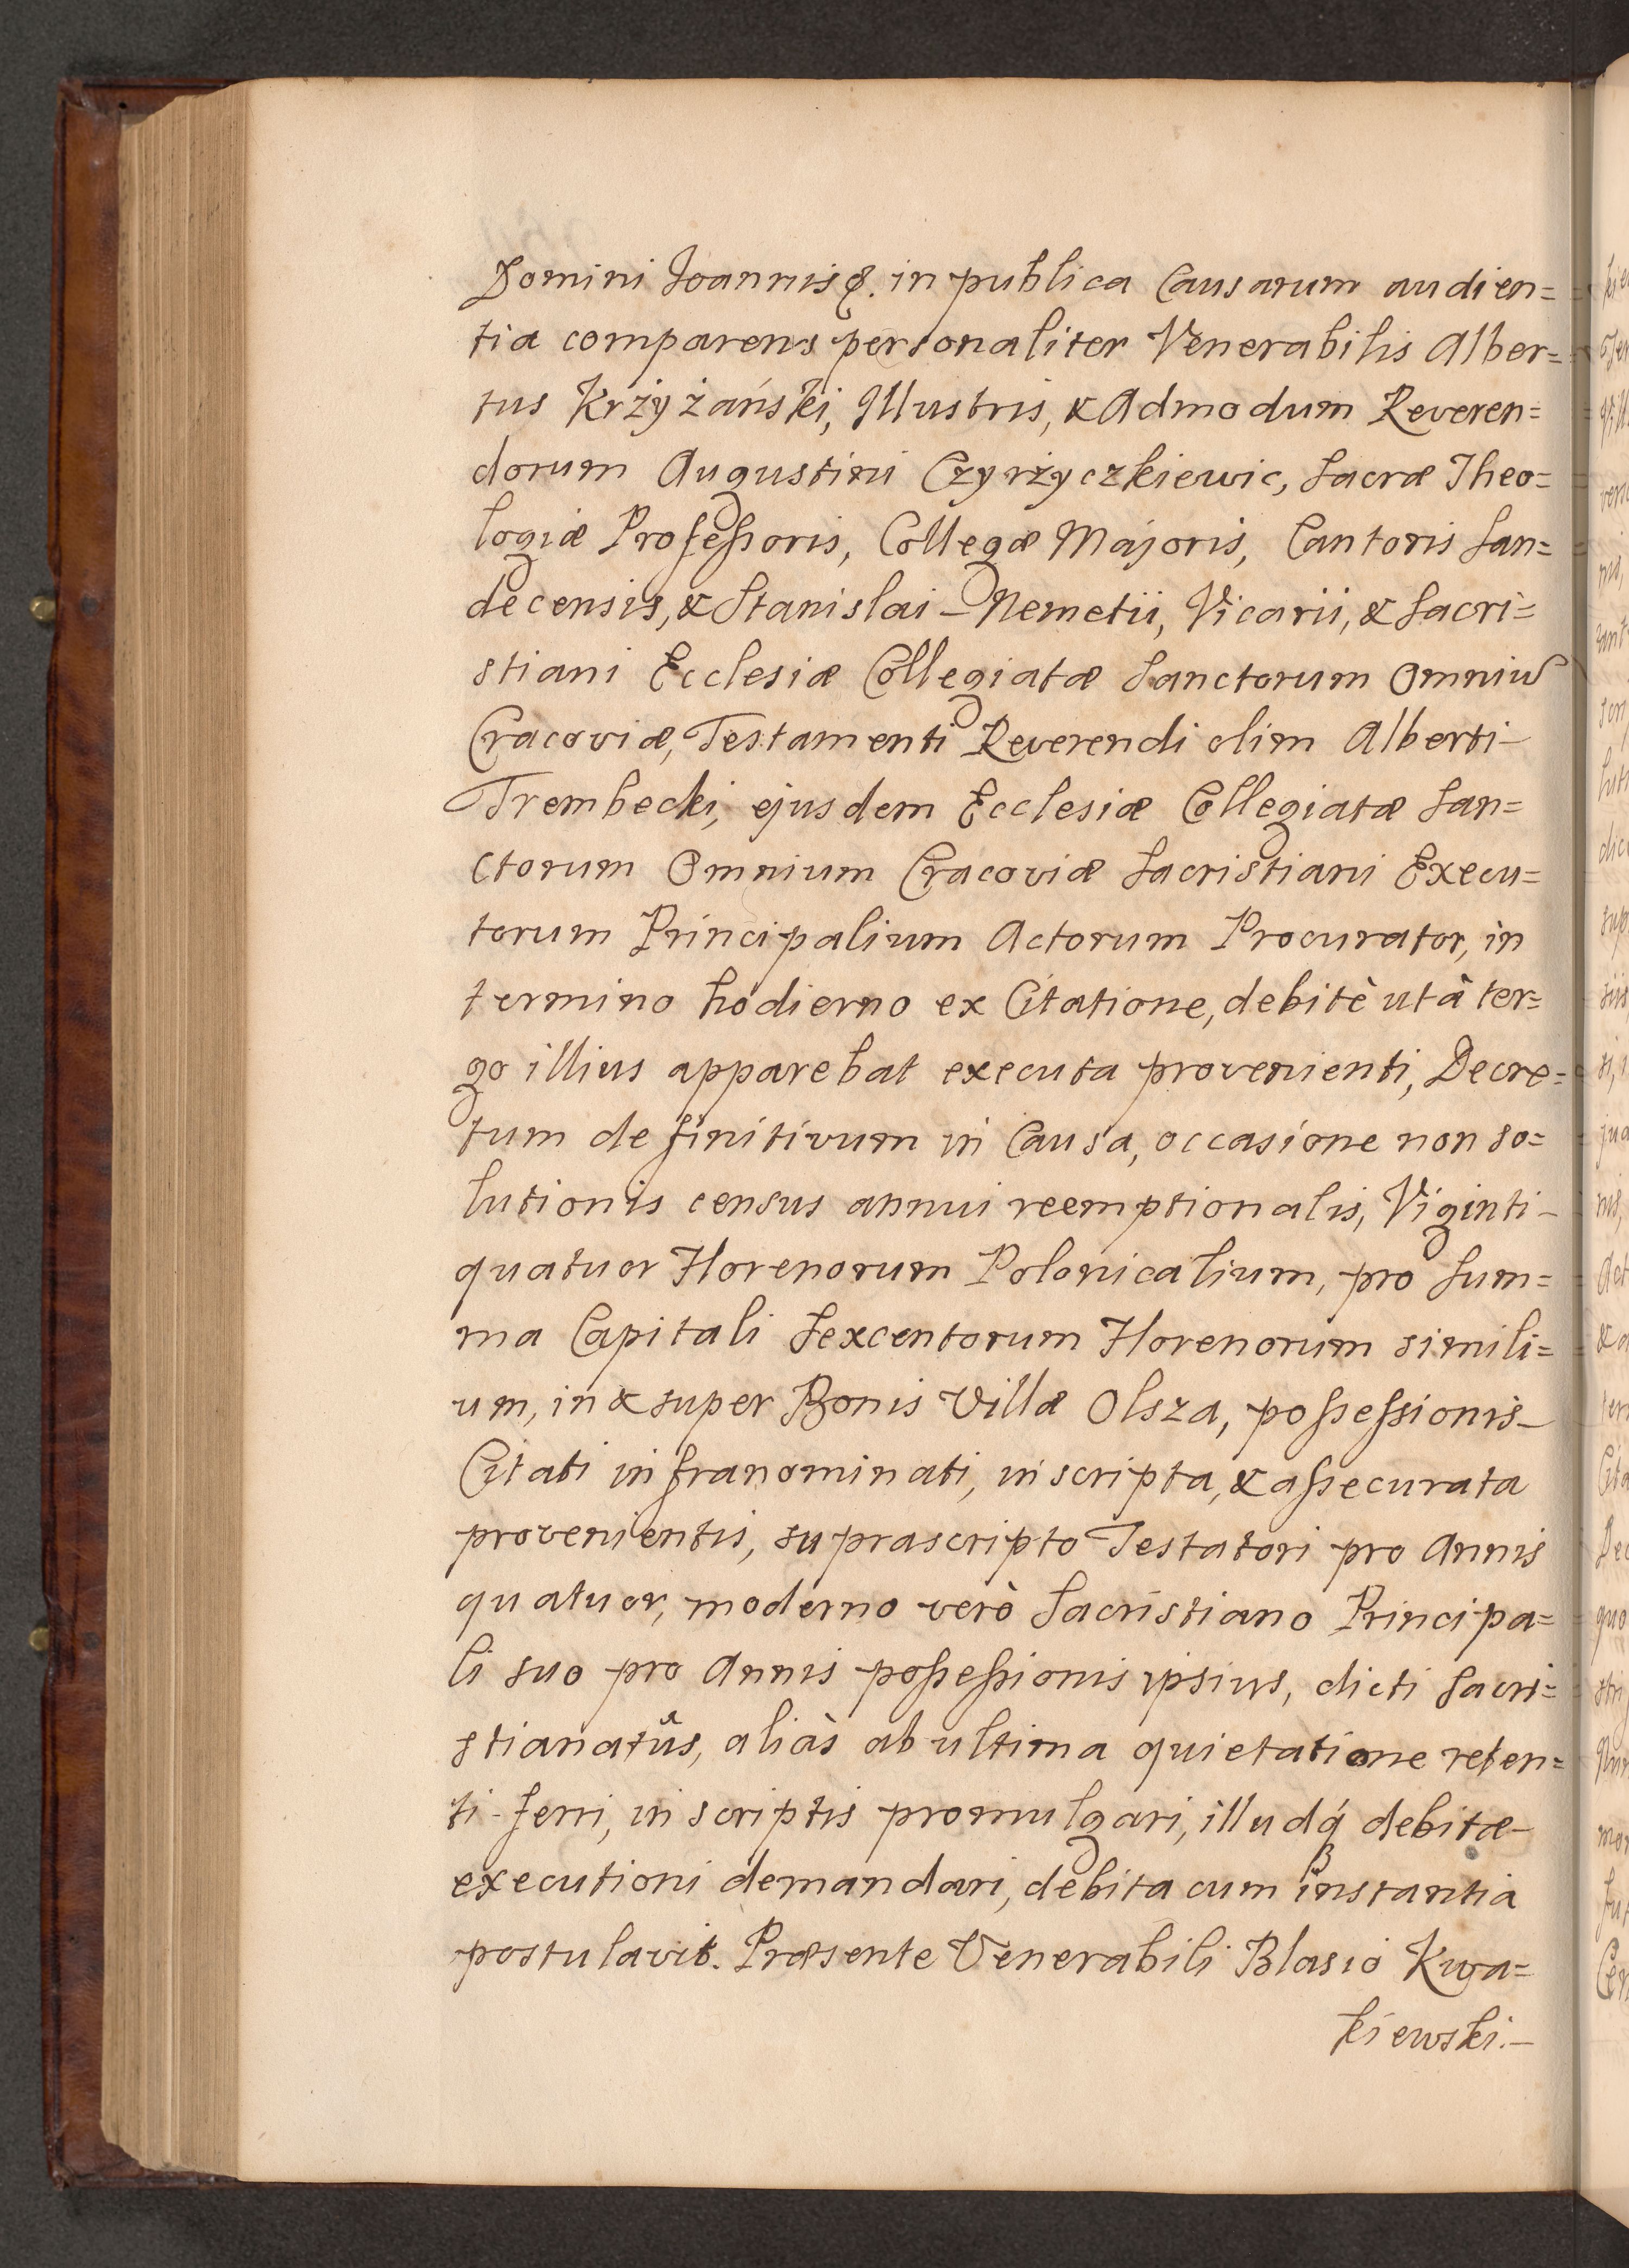 Domini Joannis &. in publica Causarum audien=
tia comparens personaliter Venerabilis Alber=
tus Krżyżański, Illustris, & Admodum Reveren=
dorum Augustini Czyrżyczkiewic, Sacræ Theo=
logiæ Professoris, Collegæ Majoris, Cantoris San=
decensis, & Stanislai – Nemetii, Vicarii, & Sacri=
stiani Ecclesiæ Collegiatæ Sanctorum Omniu
Cracoviæ, Testamenti Reverendi olim Alberti –
Trembecki, ejusdem Ecclesiæ Collegiatæ San=
ctorum Omnium Cracoviæ Sacristiani Execu=
torum Principalium Actorum Procurator, in
termino hodierno ex Citatione, debitè ut à ter=
go illius apparebat executa provenienti, Decre=
tum definitivum in Causa, occasione non so=
lutionis census annui reemptionalis, Viginti –
quatuor Florenorum Polonicalium, pro Sum=
ma Capitali Sexcentorum Florenorum simili=
um, in & super Bonis Villæ Olsza, possessionis –
Citati infranominati, inscripta, & assecurata
provenientis, suprascripto Testatori pro Annis
quatuor, moderno verò Sacristiano Principa=
li suo pro Annis possessionis ipsius, dicti Sacri=
stianatûs, aliàs ab ultima quietatione reten=
ti – ferri, in scriptis promulgari, illudq́ debitæ –
executioni demandari, debita cum instantia
postulavit. Præsente Venerabili Blasio Kwa=
kiewski. –